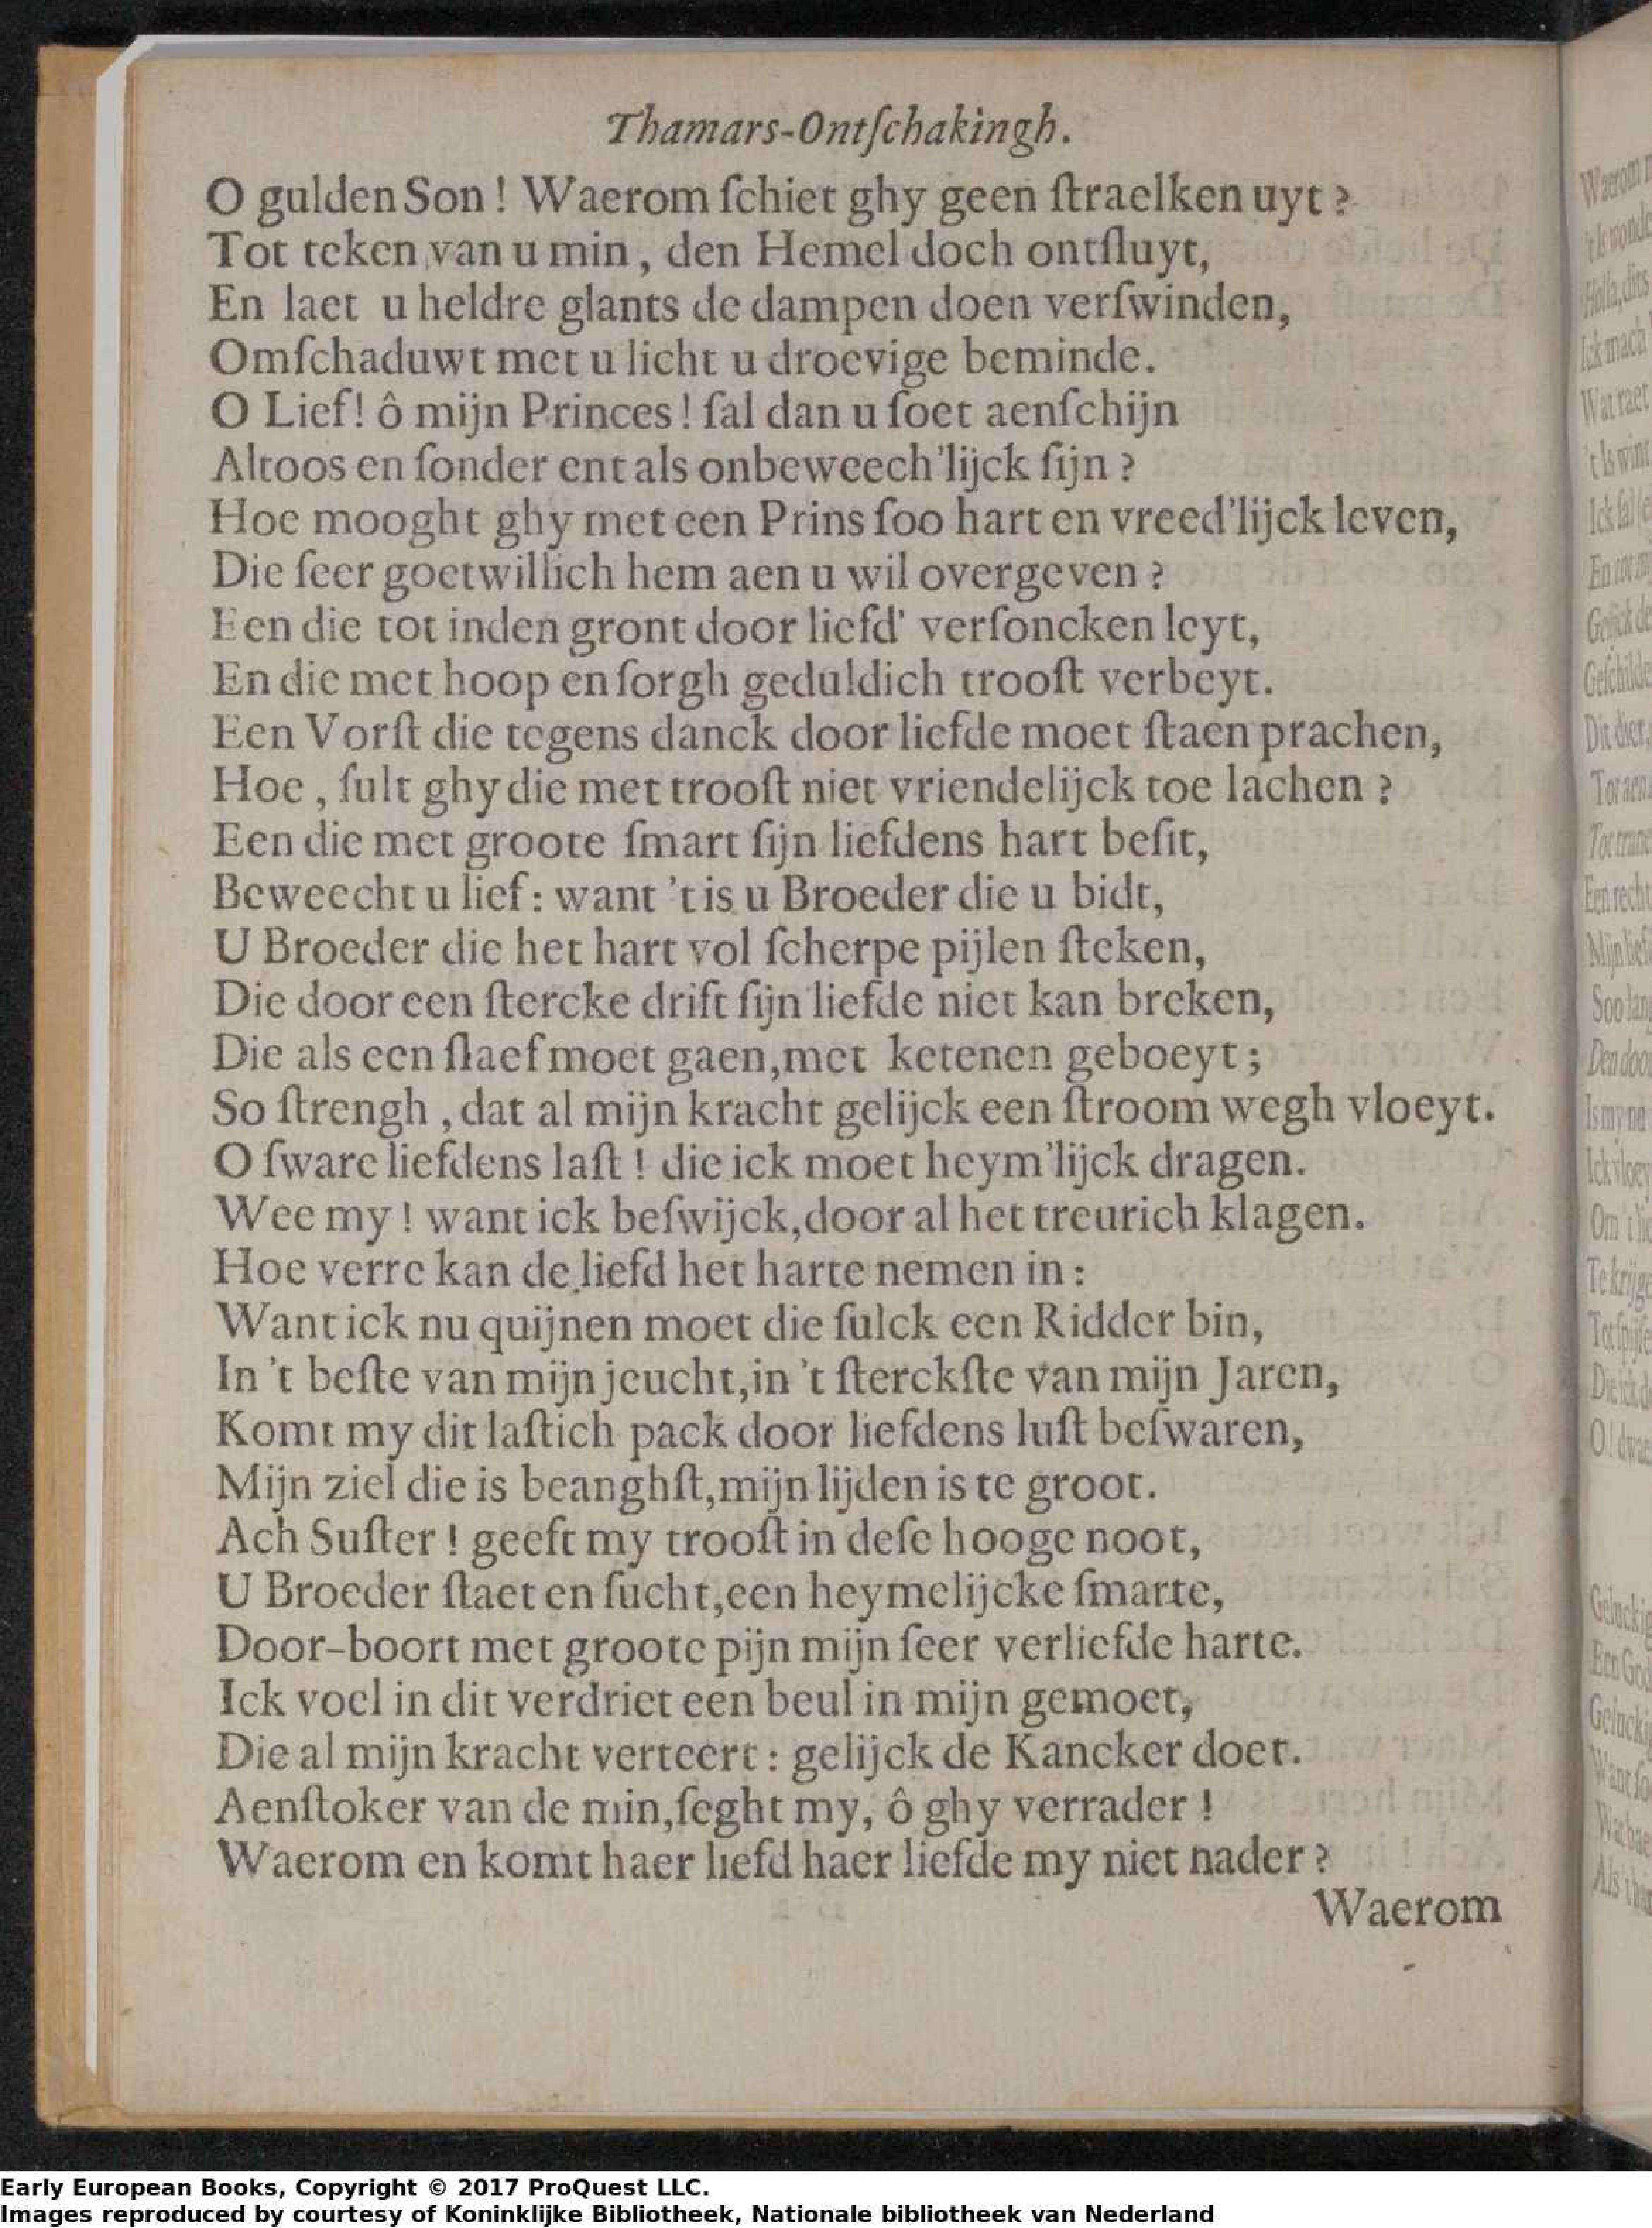 Thamars-Ontſchakingh.
O gulden Son ! Waerom ſchiet ghy geen ſtraelken uyt ?
Tot teken van u min, den Hemel doch ontſluyt,
En laet u heldre glants de dampen doen verſwinden,
Omſchaduwt met u licht u droevige beminde.
O Lief! ô mijn Princes ! ſal dan u ſoet aenſchijn
Altoos en ſonder ent als onbeweech'lijck ſijn ?
Hoe mooght ghy met een Prins ſoo hart en vreed'lijck leven,
Die ſeer goetwillich hem aen u wil overgeven ?
Een die tot inden gront door liefd' verſoncken leyt,
En die met hoop en ſorgh geduldich trooſt verbeyt.
Een Vorſt die tegens danck door liefde moet ſtaen prachen,
Hoe, ſult ghy die met trooſt niet vriendelijck toe lachen ?
Een die met groote ſmart ſijn liefdens hart beſit,
Beweecht u lief: want 't is u Broeder die u bidt,
U Broeder die het hart vol ſcherpe pijlen ſteken,
Die door een ſtercke drift ſijn liefde niet kan breken,
Die als een ſlaef moet gaen, met ketenen geboeyt;
So ſtrengh, dat al mijn kracht gelijck een ſtroom wegh vloeyt.
O ſware liefdens laſt ! die ick moet heym'lijck dragen.
Wee my ! want ick beſwijck, door al het treurich klagen.
Hoe verre kan de liefd het harte nemen in:
Want ick nu quijnen moet die ſulck een Ridder bin,
In 't beſte van mijn jeucht, in 't ſterckſte van mijn Jaren,
Komt my dit laſtich pack door liefdens luſt beſwaren,
Mijn ziel die is beanghſt, mijn lijden is te groot.
Ach Suſter ! geeft my trooſt in deſe hooge noot,
U Broeder ſtaet en ſucht, een heymelijcke ſmarte,
Door-boort met groote pijn mijn ſeer verliefde harte.
Ick voel in dit verdriet een beul in mijn gemoet,
Die al mijn kracht verteert: gelijck de Kancker doet.
Aenſtoker van de min, ſeght my, ô ghy verrader !
Waerom en komt haer liefd haer liefde my niet nader ?
Waerom
Early European Books, Copyright © 2017 ProQuest LLC.
Images reproduced by courtesy of Koninklijke Bibliotheek, Nationale bibliotheek van Nederland